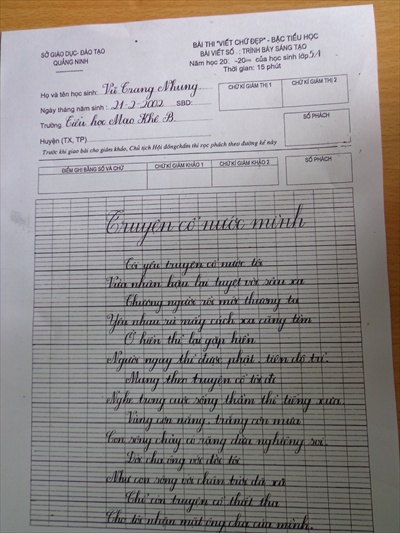 SỞ GIÁO DỤC - ĐÀO TẠO
QUẢNG NINH
BÀI THI "VIẾT CHỮ ĐẸP" - BẬC TIỂU HỌC
BÀI VIẾT SỐ : TRÌNH BÀY SÁNG TẠO
Năm học 20 -20 của học sinh lớp 5A
Thời gian: 15 phút
Họ và tên học sinh: Vũ Trang Nhung
Ngày tháng năm sinh : 21-2-2002 SBD:
Trường Tiểu học Mạo Khê B
Huyện (TX, TP)
CHỮ KÍ GIÁM THỊ 1
CHỮ KÍ GIÁM THỊ 2
SỐ PHÁCH
Trước khi giao bài cho giám khảo, Chủ tịch Hội đồng chấm thi rọc phách theo đường kẻ này
ĐIỂM GHI BẰNG SỐ VÀ CHỮ
CHỮ KÍ GIÁM KHẢO 1
CHỮ KÍ GIÁM KHẢO 2
SỐ PHÁCH
Truyện cổ nước mình
Tôi yêu truyện cổ nước tôi
Vừa nhân hậu lại tuyệt vời sâu xa
Thương người rồi mới thương ta
Yêu nhau dù mấy cách xa cũng tìm
Ở hiền thì lại gặp hiền
Người ngay thì được phật, tiên độ trì.
Mang theo truyện cổ tôi đi
Nghe trong cuộc sống thầm thì tiếng xưa
Vàng cơn nắng, trắng cơn mưa
Con sông chảy có rặng dừa nghiêng soi.
Đời cha ông với đời tôi
Như con sông với chân trời đã xa
Chỉ còn truyện cổ thiết tha
Cho tôi nhận mặt ông cha của mình.